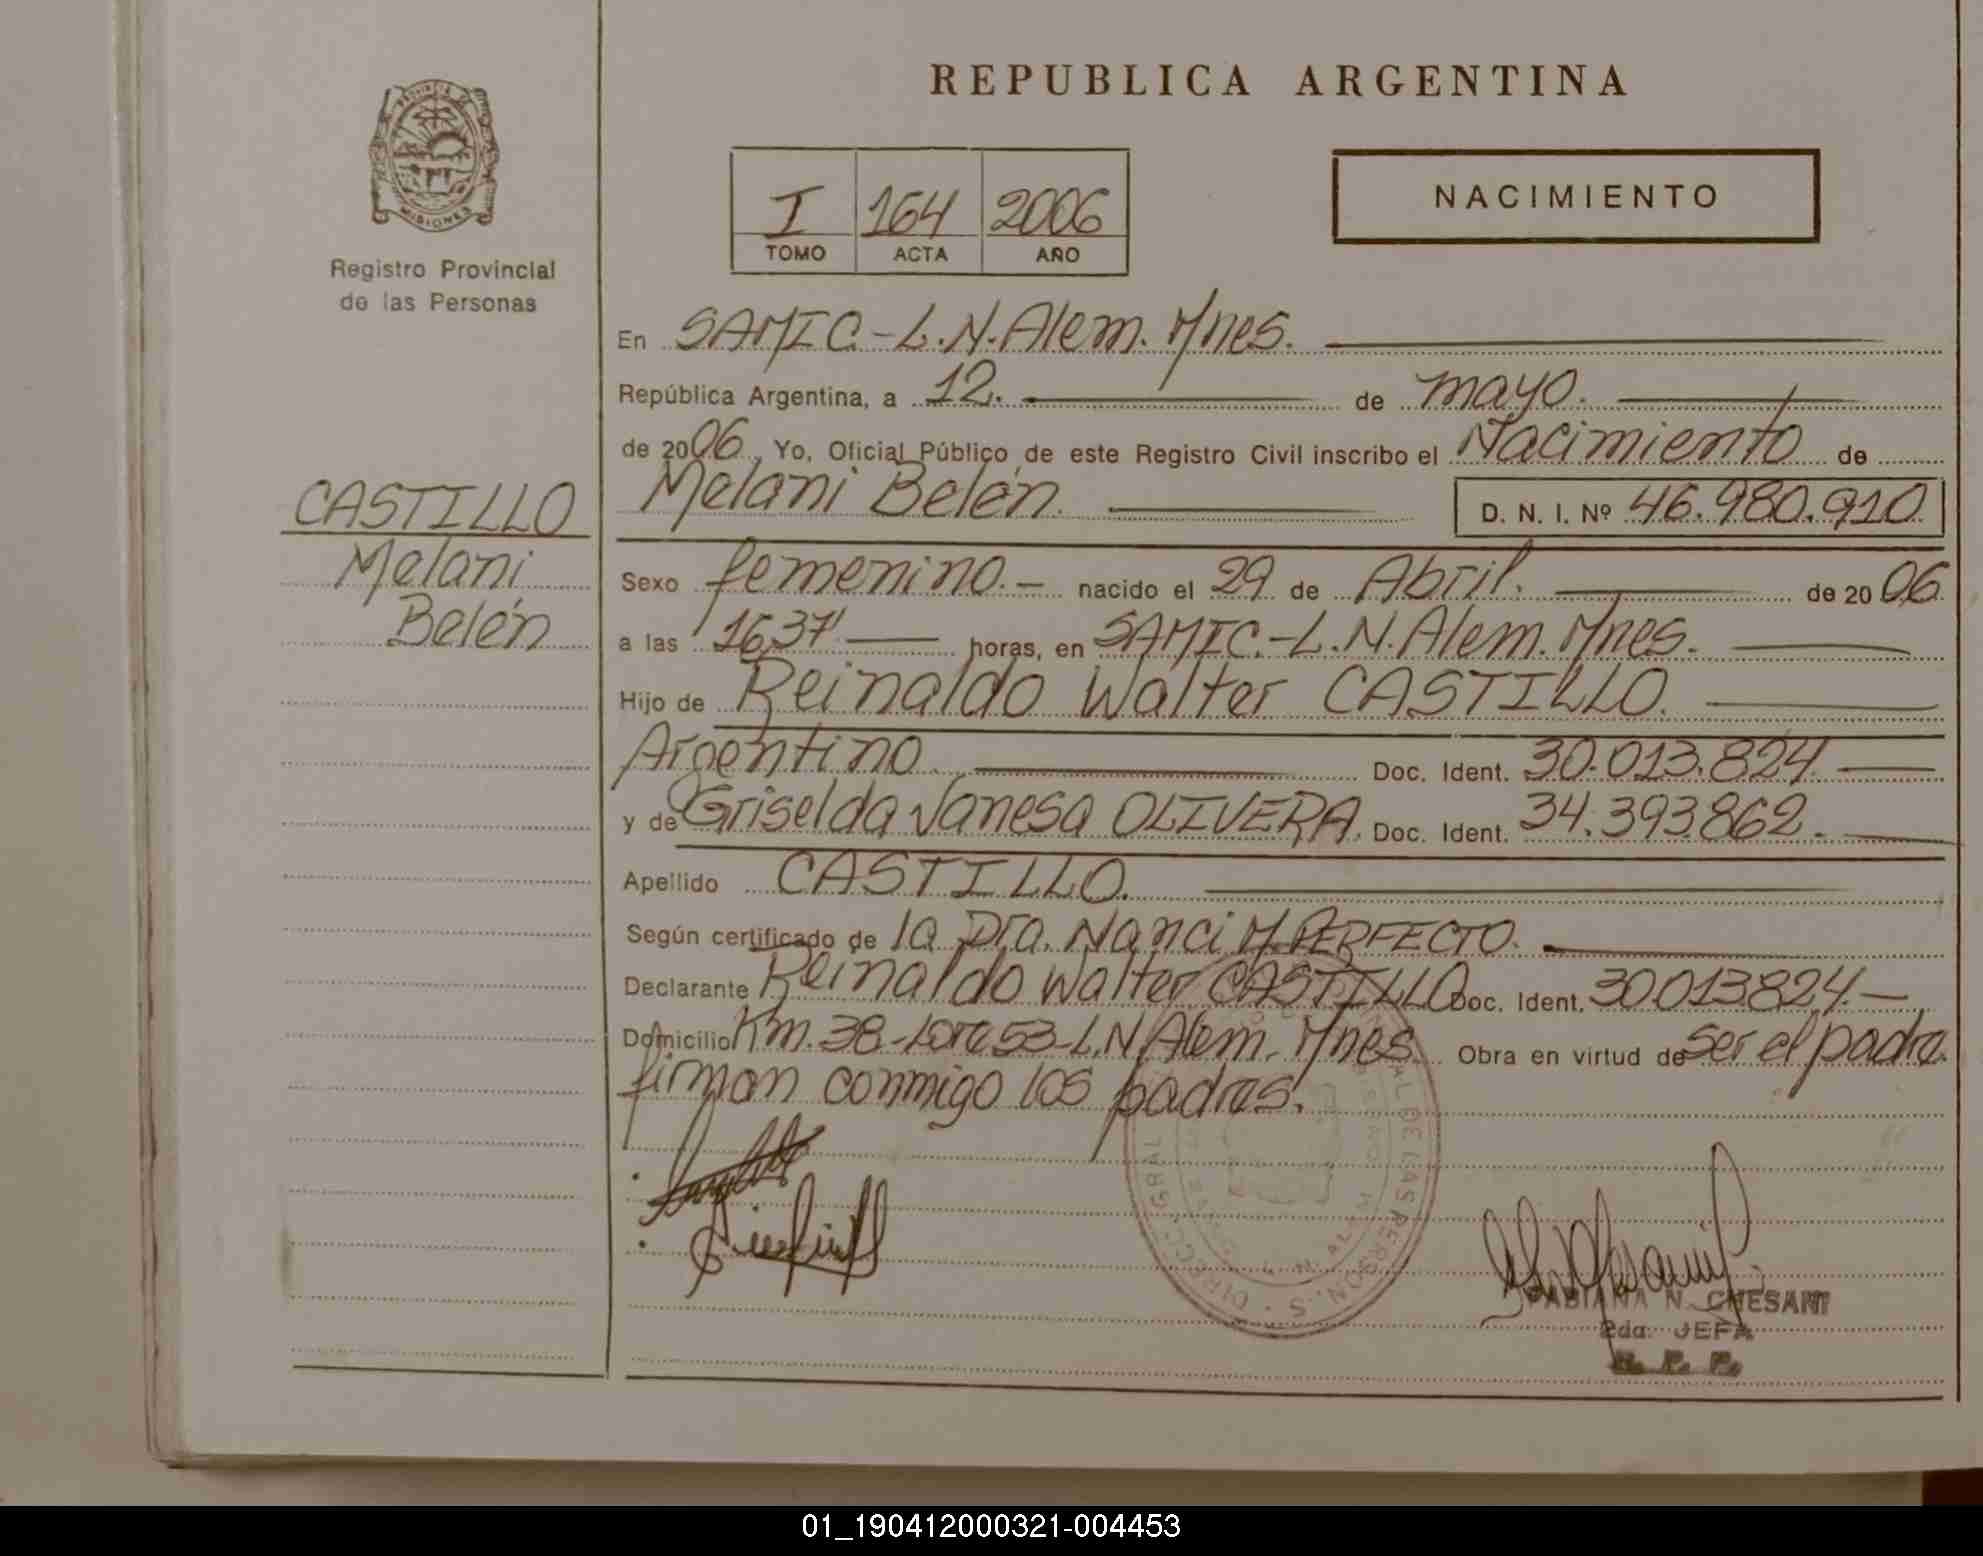 REPUBLICA ARGENTINA
PROVINCIA DE
MISIONES
Registro Provincial
de las Personas
I 164 2006
TOMO ACTA AÑO
NACIMIENTO
CASTILLO
Melani
Belén
En SAMIC.-L.N.Alem. Mnes.
República Argentina, a 12. de mayo.
de 2006. Yo, Oficial Público de este Registro Civil inscribo el Nacimiento de
Melani Belén. D. N. I. Nº 46.980.910
Sexo femenino.- nacido el 29 de Abril. de 2006
a las 16,37' horas, en SAMIC.-L.N.Alem. Mnes.
Hijo de Reinaldo Walter CASTILLO.
Argentino Doc. Ident. 30.013.824.
y de Griselda Vanesa OLIVERA. Doc. Ident. 34.393.862.
Apellido CASTILLO.
Según certificado de la Dra. Nanci M. PERFECTO.
Declarante Reinaldo Walter CASTILLO Doc. Ident. 30013824.-
Domicilio Km. 38-Lote 53-L.N.Alem. Mnes. Obra en virtud de ser el padre.
firman conmigo los padres.
FABIANA N. CHESANI
2da. JEFA
R. P. P.
01_190412000321-004453